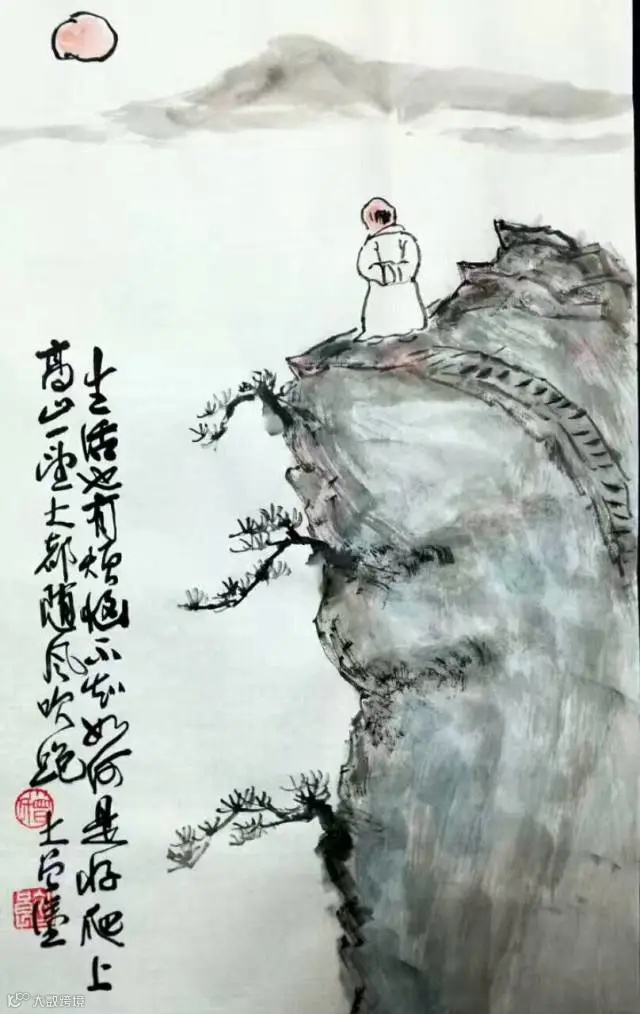 生活也有烦恼不知如何是好爬上
高山一望大都随风吹跑
大数跨境